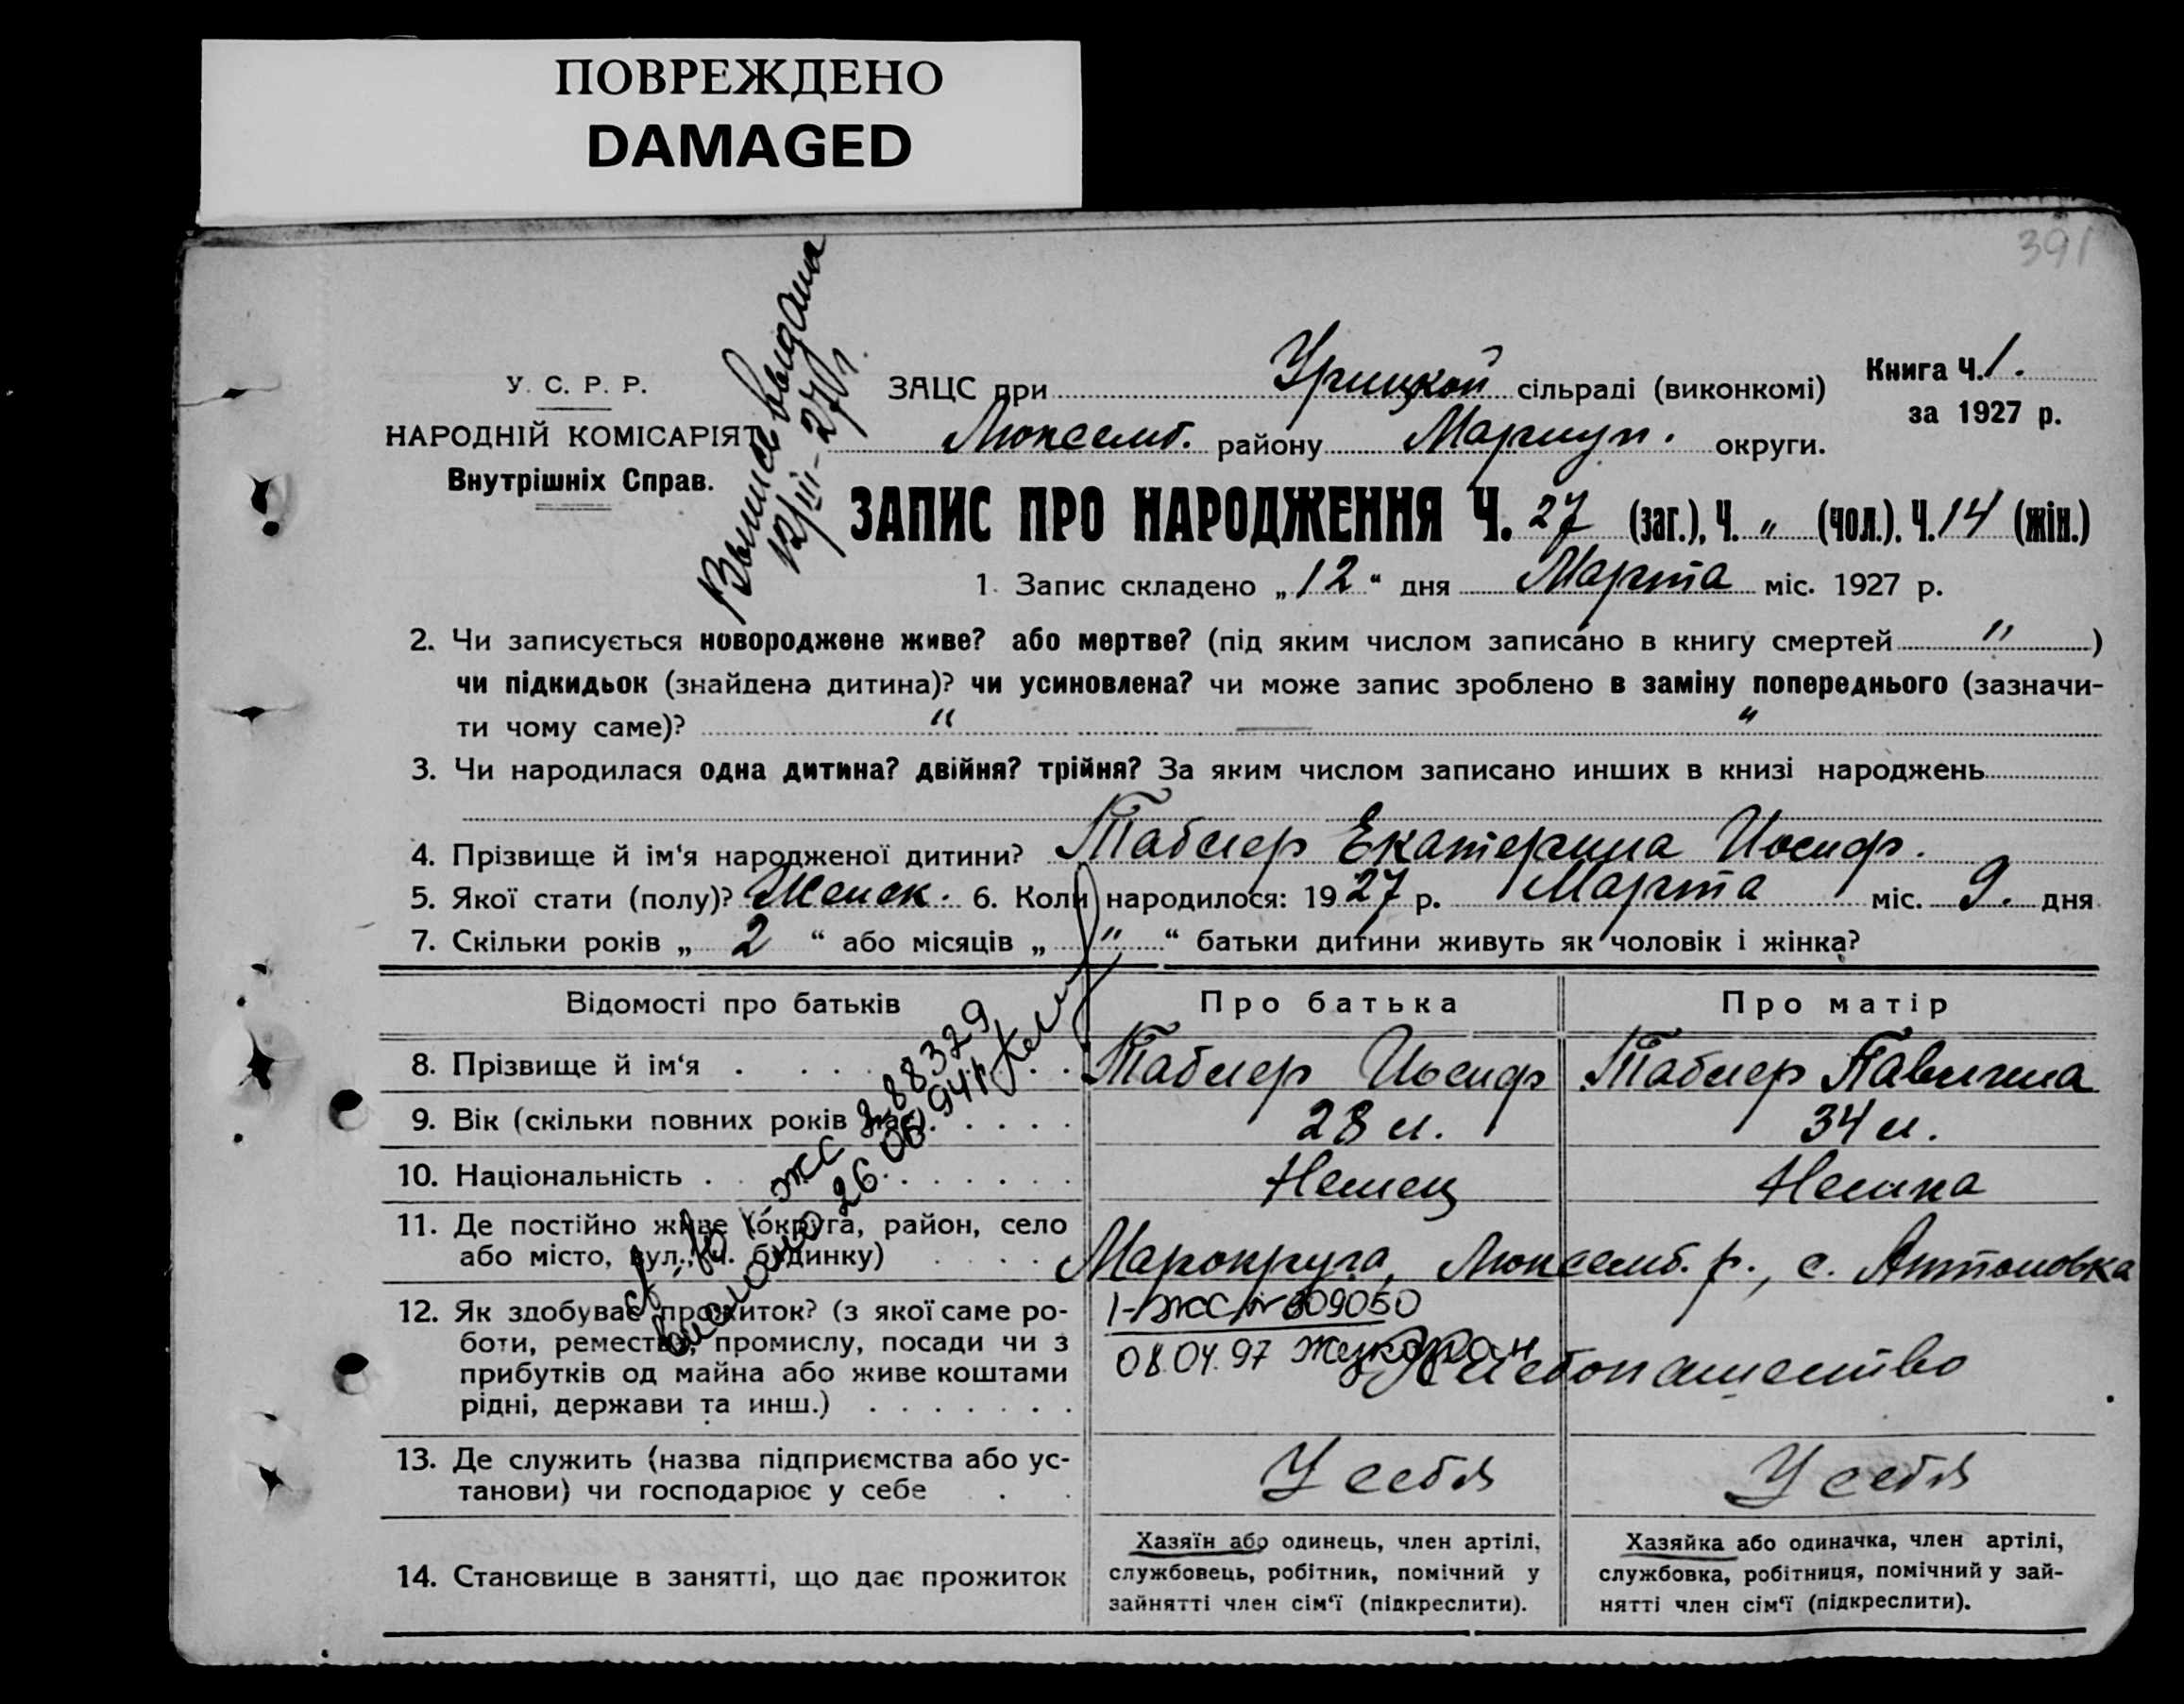 ПОВРЕЖДЕНО
DAMAGED
391
У. С. Р. Р.
НАРОДНІЙ КОМІСАРІЯТ
Внутрішніх Справ.
Выпись выдана
12/III-27 г.
ЗАЦС при Урицкой сільраді (виконкомі)
Люксемб. району Мариуп. округи.
Книга Ч. 1.
за 1927 р.
ЗАПИС ПРО НАРОДЖЕННЯ Ч. 27 (заг.), Ч. „ (чол.). Ч. 14 (жін.)
1. Запис складено „12“ дня Марта міс. 1927 р.
2. Чи записується новороджене живе? або мертве? (під яким числом записано в книгу смертей " )
чи підкидьок (знайдена дитина)? чи усиновлена? чи може запис зроблено в заміну попереднього (зазначи-
ти чому саме)? " — "
3. Чи народилася одна дитина? двійня? трійня? За яким числом записано инших в книзі народжень
4. Прізвище й ім‘я народженої дитини? Таблер Екатерина Иосиф.
5. Якої стати (полу)? Женск. 6. Коли народилося: 1927 р. Марта міс. 9. дня
7. Скільки років „ 2 “ або місяців „ " “ батьки дитини живуть як чоловік і жінка?
Відомості про батьків Про батька Про матір
8. Прізвище й ім‘я Таблер Иосиф Таблер Павлина
9. Вік (скільки повних років має) 28 л. 34 л.
10. Національність Немец Немка
11. Де постійно живе (округа, район, село
або місто, вул., ч. будинку) Марокруга, Люксемб. р., с. Антоновка
12. Як здобуває прожиток? (з якої саме ро-
боти, ремества, промислу, посади чи з
прибутків од майна або живе коштами
рідні, держави та инш.) Хлебопашество
I-ЖС № 609050
08.04.97
I-ЖС 288329
26.06.94
13. Де служить (назва підприємства або ус-
танови) чи господарює у себе У себя У себя
14. Становище в занятті, що дає прожиток
Хазяїн або одинець, член артілі,
службовець, робітник, помічний у
зайнятті член сім‘ї (підкреслити).
Хазяйка або одиначка, член артілі,
службовка, робітниця, помічний у зай-
нятті член сім‘ї (підкреслити).